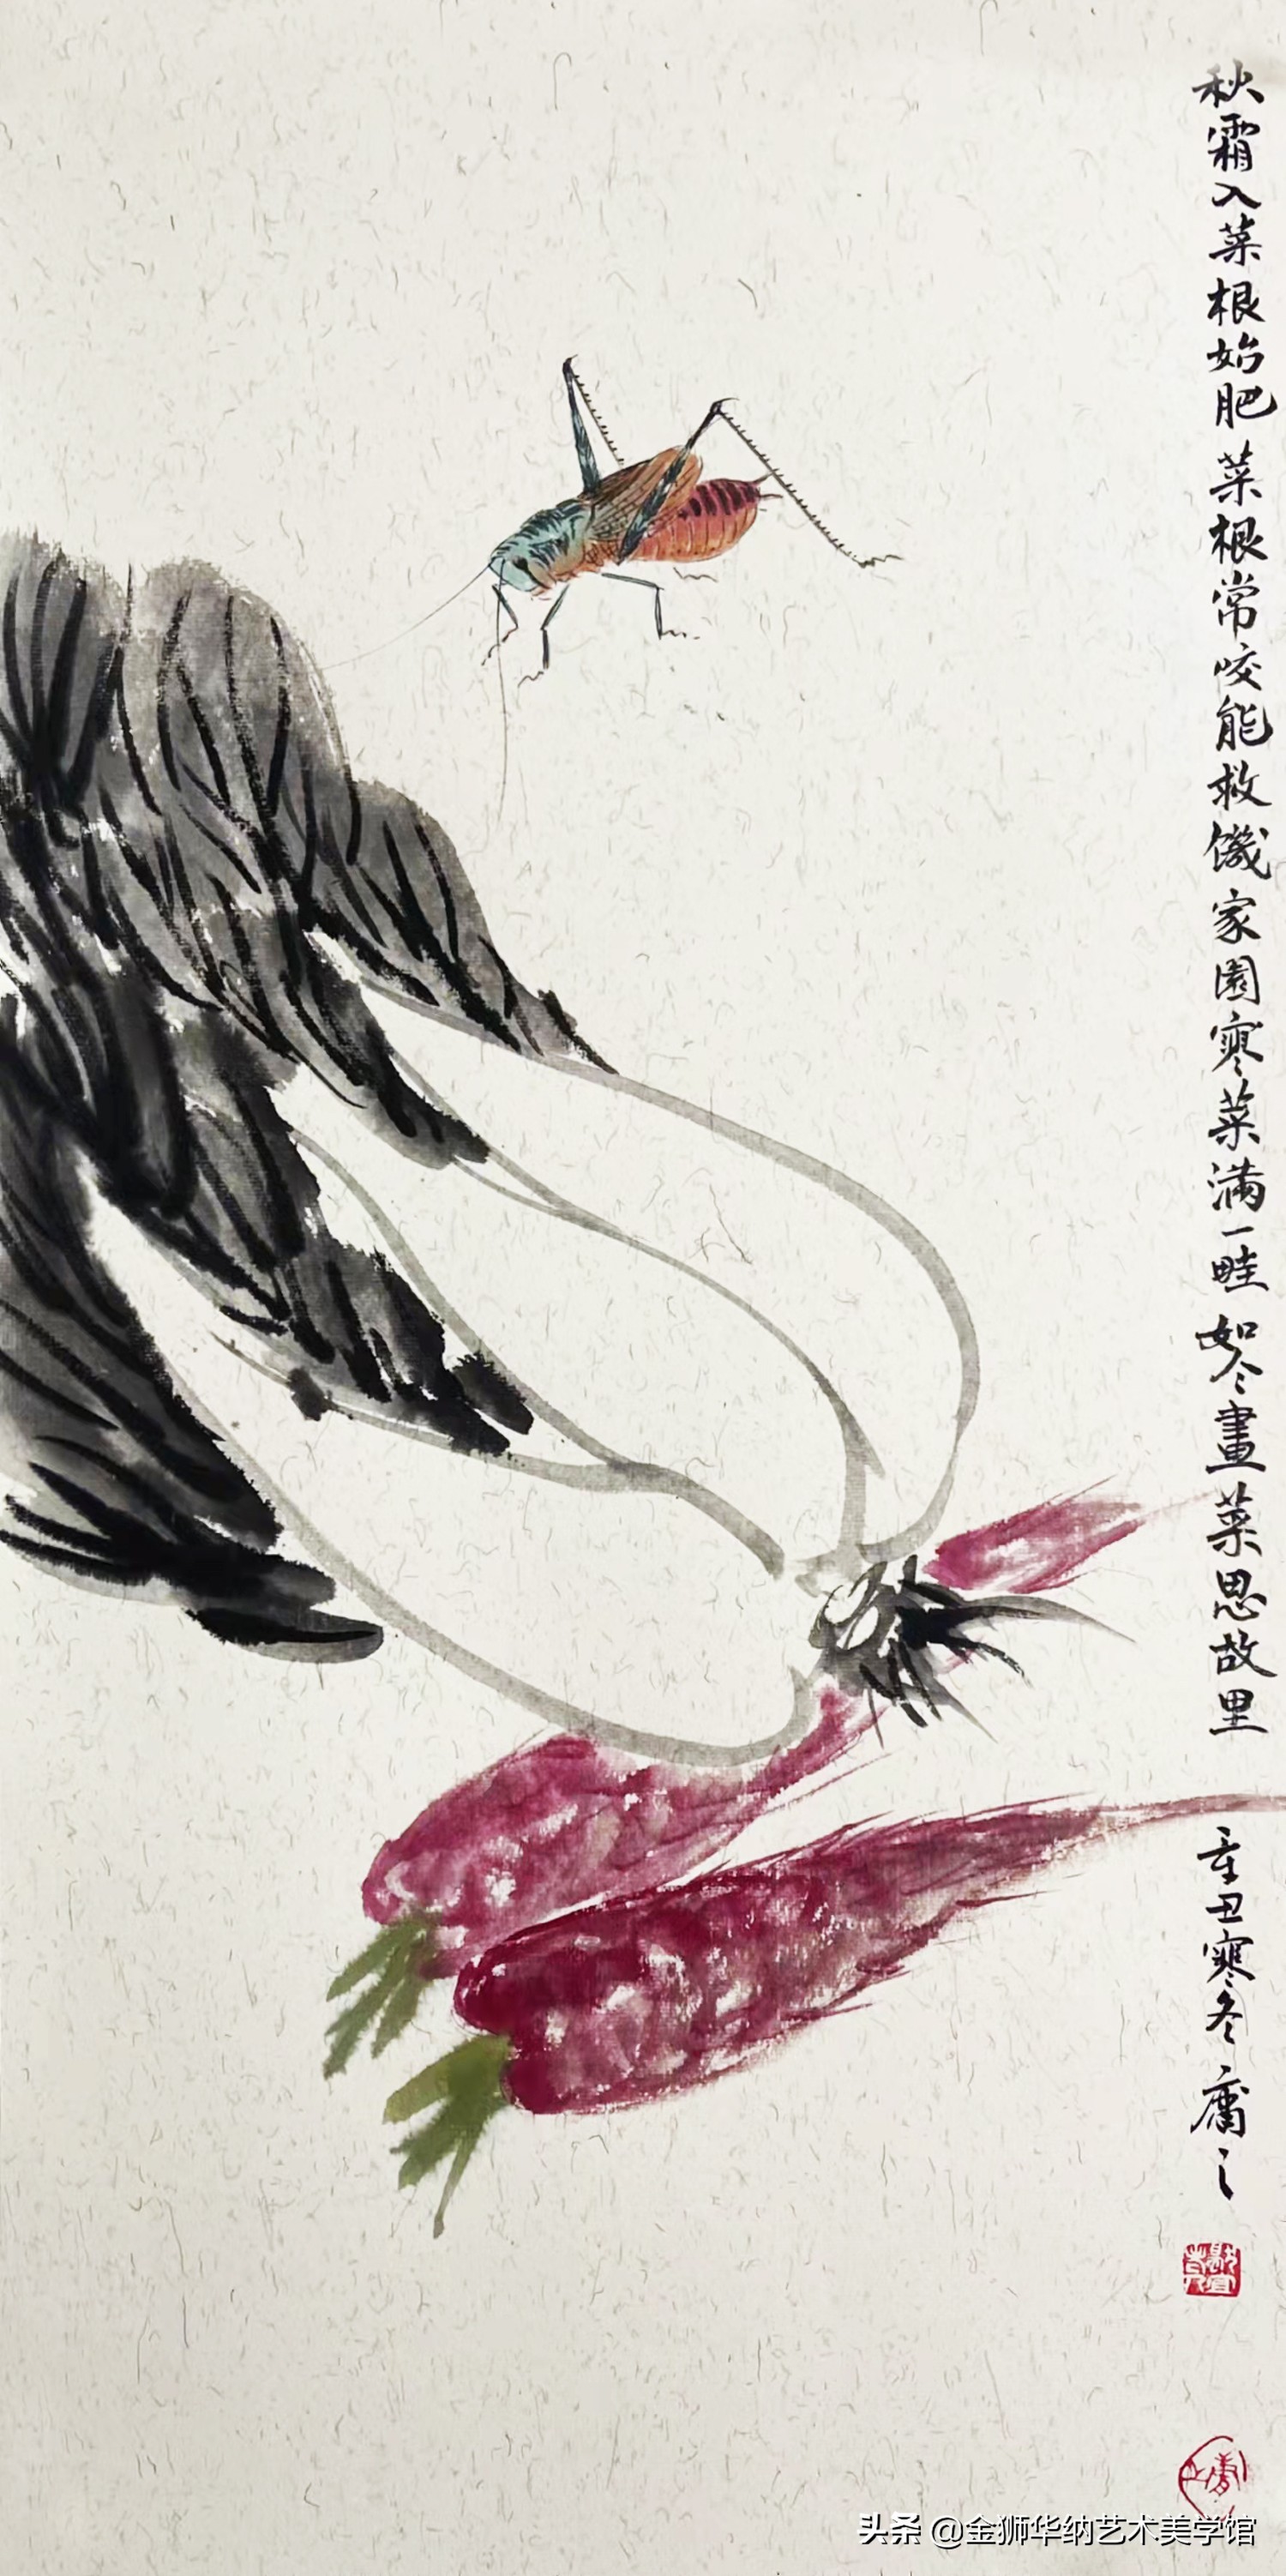 秋霜入菜根始肥菜根常咬能救饑家園寒菜满一畦如今畫菜思故里
辛丑寒冬庸之
头条 @金狮华纳艺术美学馆